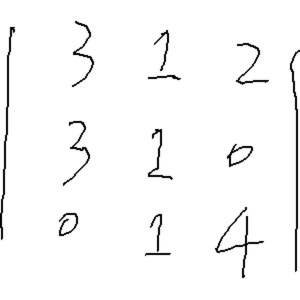 | 3 1 2 |
| 3 1 0 |
| 0 1 4 |